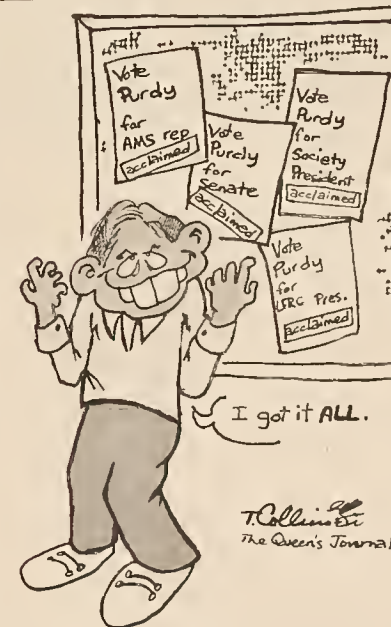 Vote
Purdy
for
AMS rep
acclaimed
Vote
Purdy
for
senate
acclaimed
Vote
Purdy
for
Society
President
acclaimed
Vote
Purdy
for
Pres.
acclaimed
I got it ALL.
T. Collins
The Queen's Journal